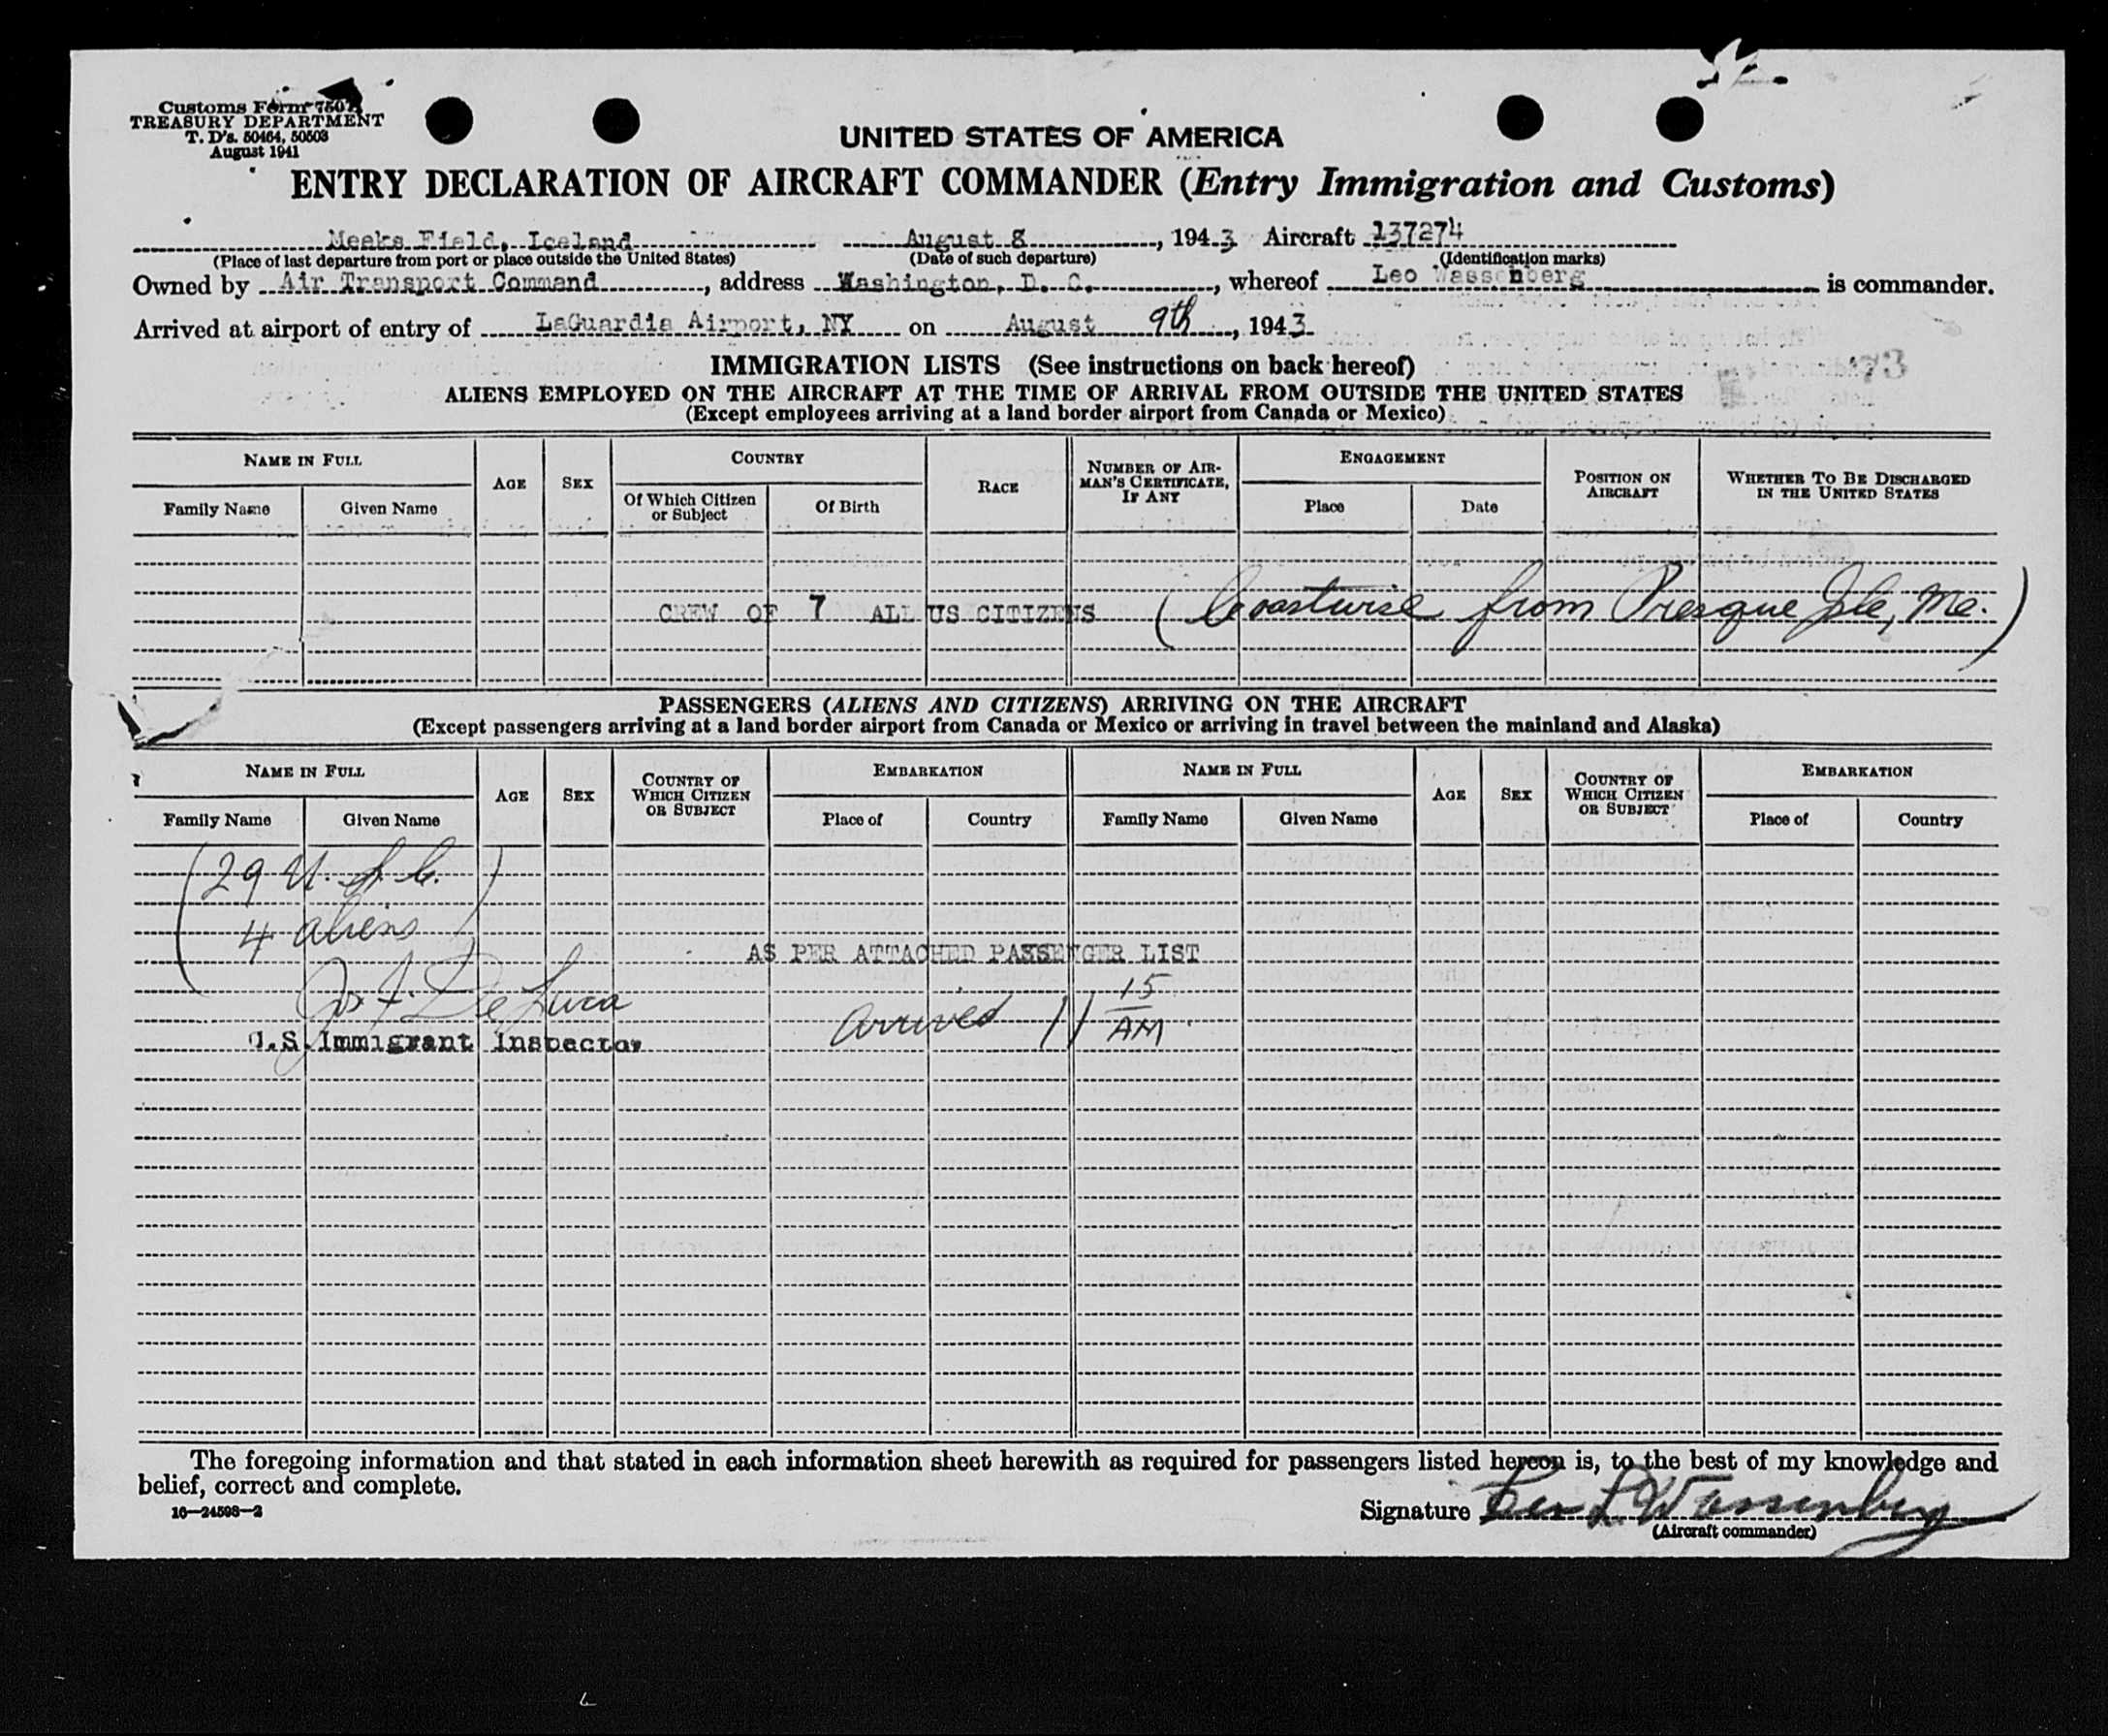 Customs Form 7507
TREASURY DEPARTMENT
T. D's. 50464, 50503
August 1941
UNITED STATES OF AMERICA
ENTRY DECLARATION OF AIRCRAFT COMMANDER (Entry Immigration and Customs)
Meeks Field, Iceland August 8, 1943 Aircraft 137274
(Place of last departure from port or place outside the United States) (Date of such departure) (Identification marks)
Owned by Air Transport Command, address Washington, D. C., whereof Leo Wassenberg is commander.
Arrived at airport of entry of LaGuardia Airport, NY on August 9th, 1943
IMMIGRATION LISTS (See instructions on back hereof)
73
ALIENS EMPLOYED ON THE AIRCRAFT AT THE TIME OF ARRIVAL FROM OUTSIDE THE UNITED STATES
(Except employees arriving at a land border airport from Canada or Mexico)
NAME IN FULL AGE SEX COUNTRY RACE NUMBER OF AIRMAN'S CERTIFICATE, IF ANY ENGAGEMENT POSITION ON AIRCRAFT WHETHER TO BE DISCHARGED IN THE UNITED STATES
Family Name Given Name Of Which Citizen or Subject Of Birth Place Date
CREW OF 7 ALL US CITIZENS (Coastwise from Presque Isle, Me.)
PASSENGERS (ALIENS AND CITIZENS) ARRIVING ON THE AIRCRAFT
(Except passengers arriving at a land border airport from Canada or Mexico or arriving in travel between the mainland and Alaska)
NAME IN FULL AGE SEX COUNTRY OF WHICH CITIZEN OR SUBJECT EMBARKATION NAME IN FULL AGE SEX COUNTRY OF WHICH CITIZEN OR SUBJECT EMBARKATION
Family Name Given Name Place of Country Family Name Given Name Place of Country
(29 U. S. C.)
4 aliens
AS PER ATTACHED PASSENGER LIST
Jos F. De Luca
Arrived 11 15 AM
U.S. Immigrant Inspector
The foregoing information and that stated in each information sheet herewith as required for passengers listed hereon is, to the best of my knowledge and
belief, correct and complete.
16—24598—2
Signature Leo L Wassenberg
(Aircraft commander)